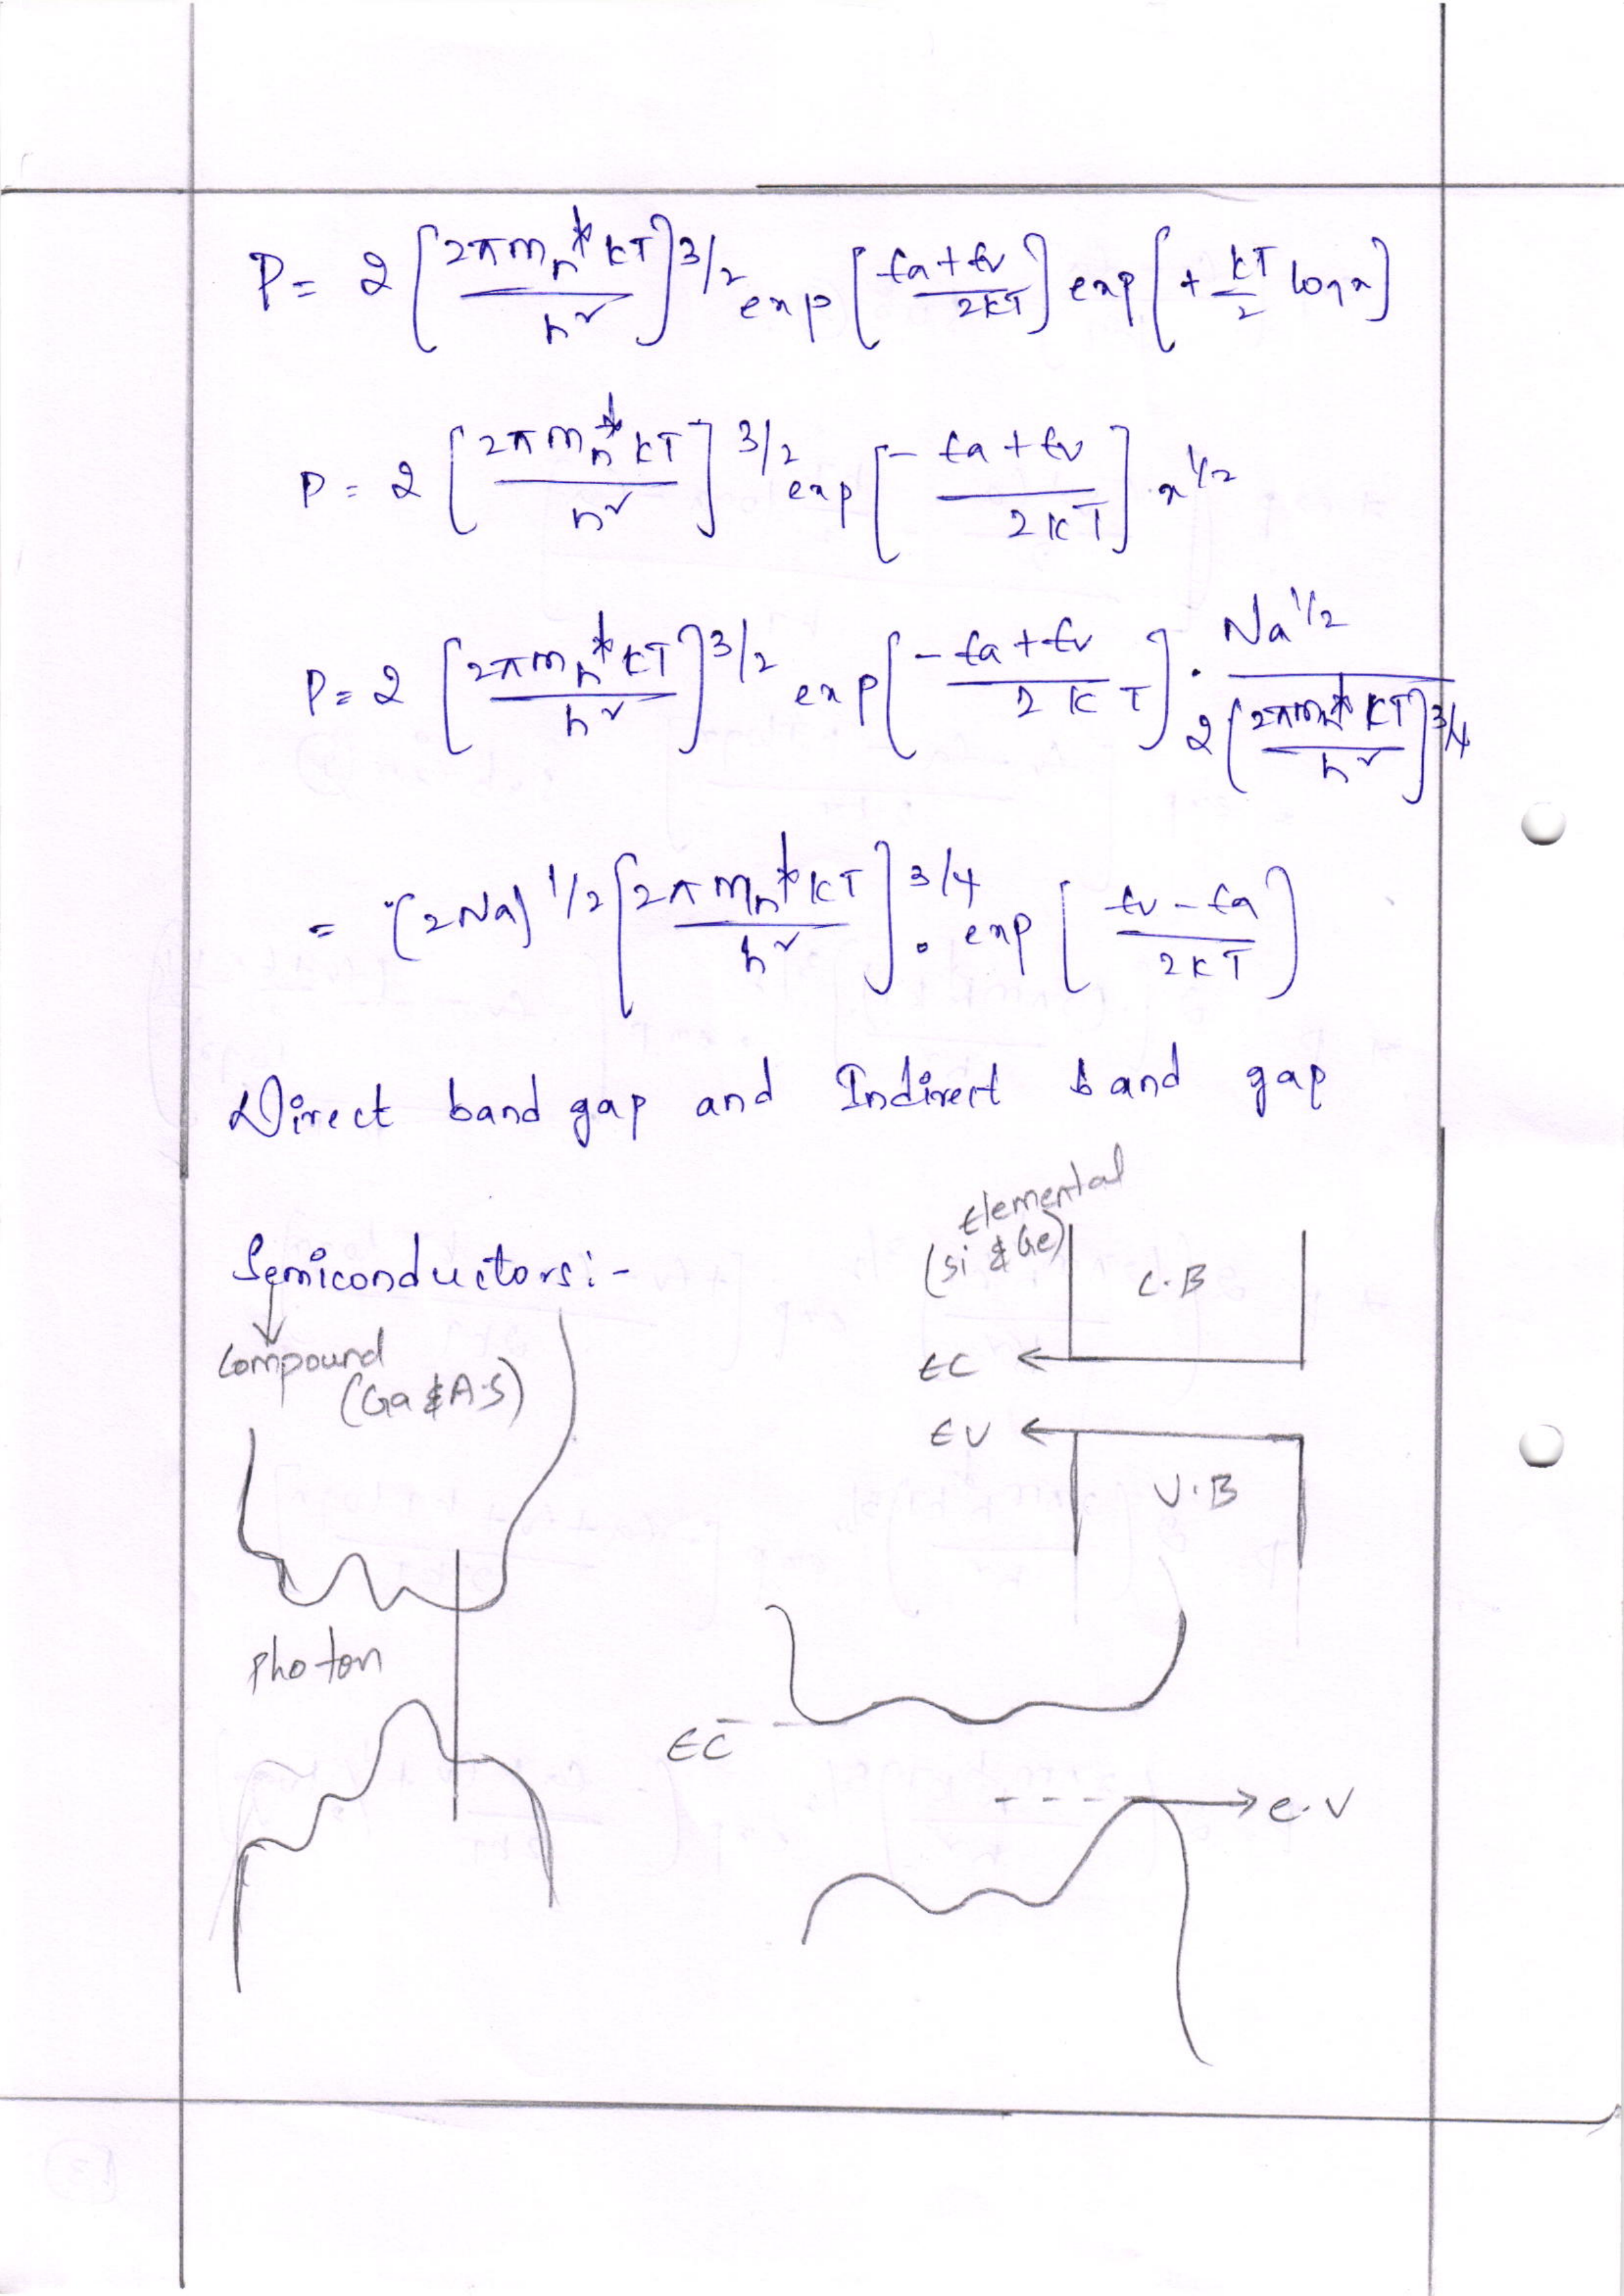 P = 2 [2πmn* kT / h²]^3/2 exp [Ea + Ev / 2kT] exp [+ kT/2 log x]
P = 2 [2πmn* kT / h²]^3/2 exp [- Ea + Ev / 2kT] . x^1/2
P = 2 [2πmn* kT / h²]^3/2 exp [- Ea + Ev / 2kT] . Na^1/2 / 2 [2πmn* kT / h²]^3/4
= (2Na)^1/2 [2πmn* kT / h²]^3/4 . exp [Ev - Ea / 2kT]
Direct band gap and Indirect band gap
Semiconductors:-
Elemental
(Si & Ge)
C.B
EC
EV
V.B
Compound
(Ga & A.S)
Photon
EC
e.V